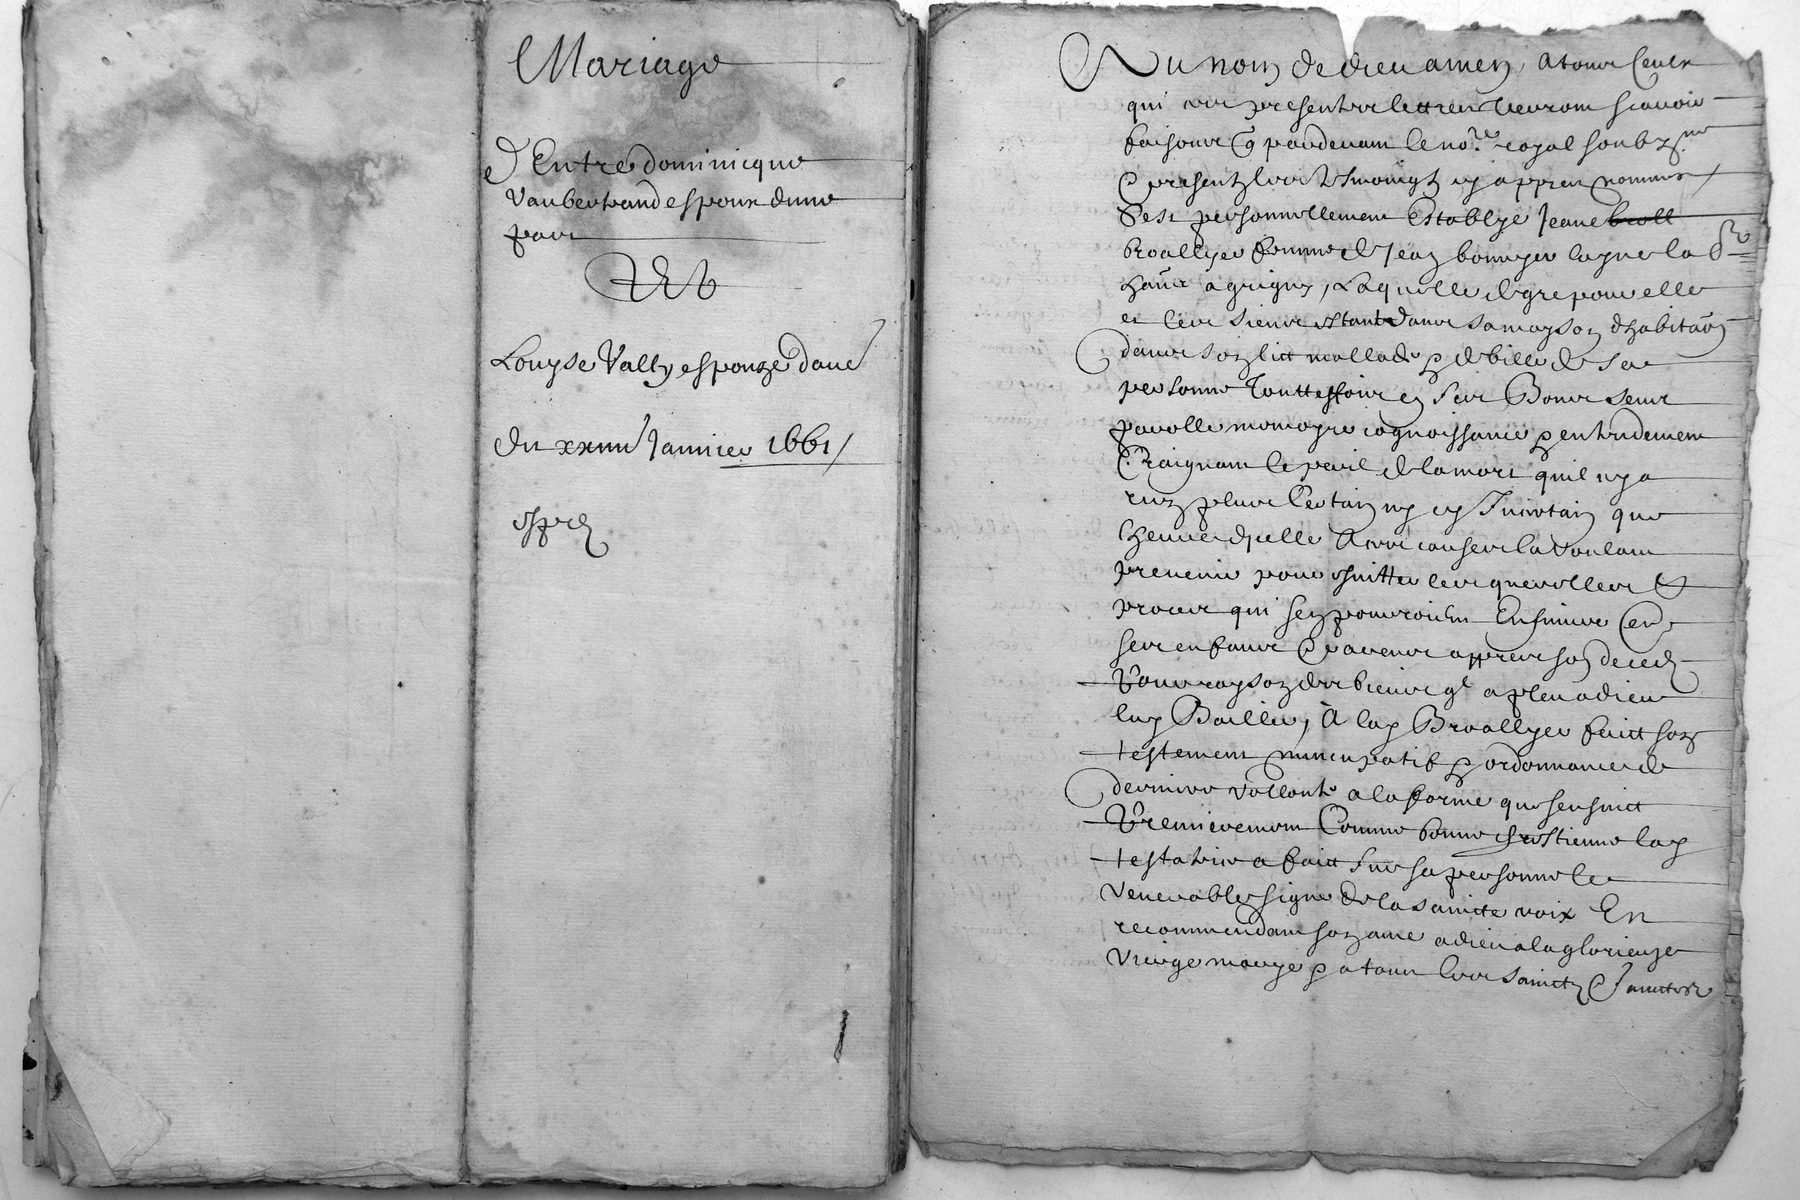 Mariage
D'Entre dominicque
Vaubertrand espoux dune
part
Et
Louyse Vally espouze daue
du xxiiii Janvier 1661
Au nom de dieu amen Atous Ceulx
qui ces presentes lettres verront scavoir
faisons q pardevant le no.re royal soubz.ne
presentz les tesmoingtz cy appres nommes
sest personnellement Establye Jeane
broallyer femme de Jean
a grigny, Laquelle de gre pour elle
et les siens estant dans sa mayson dhabitaon
dans son lict mallade & debille de sa
personne Touttesfois en ses Bons sens
parolle memoyre cognoissance & entendement
Craignant le peril de la mort quil ny a
rien plus Certain ny Incertain que
lheure dicelle A ces causes la voulant
prevenir pour esvitter les querelles &
proces qui sen pourroient Ensuivre Centre
ses enfans Cy advenir appres son deces
Pour rayson des biens ql a pleu a dieu
luy Bailler, A lad Broallyer faict son
testement nuncupatif & ordonnance de
derniere vollonte a la forme que sensuict
Premierement Comme bonne chrestienne lad
testatrice a faict sur sa personne le
venerable signe de la saincte croix En
recommendant son ame a dieu a la glorieuze
vierge marye & a tous les sainctz & sainctes